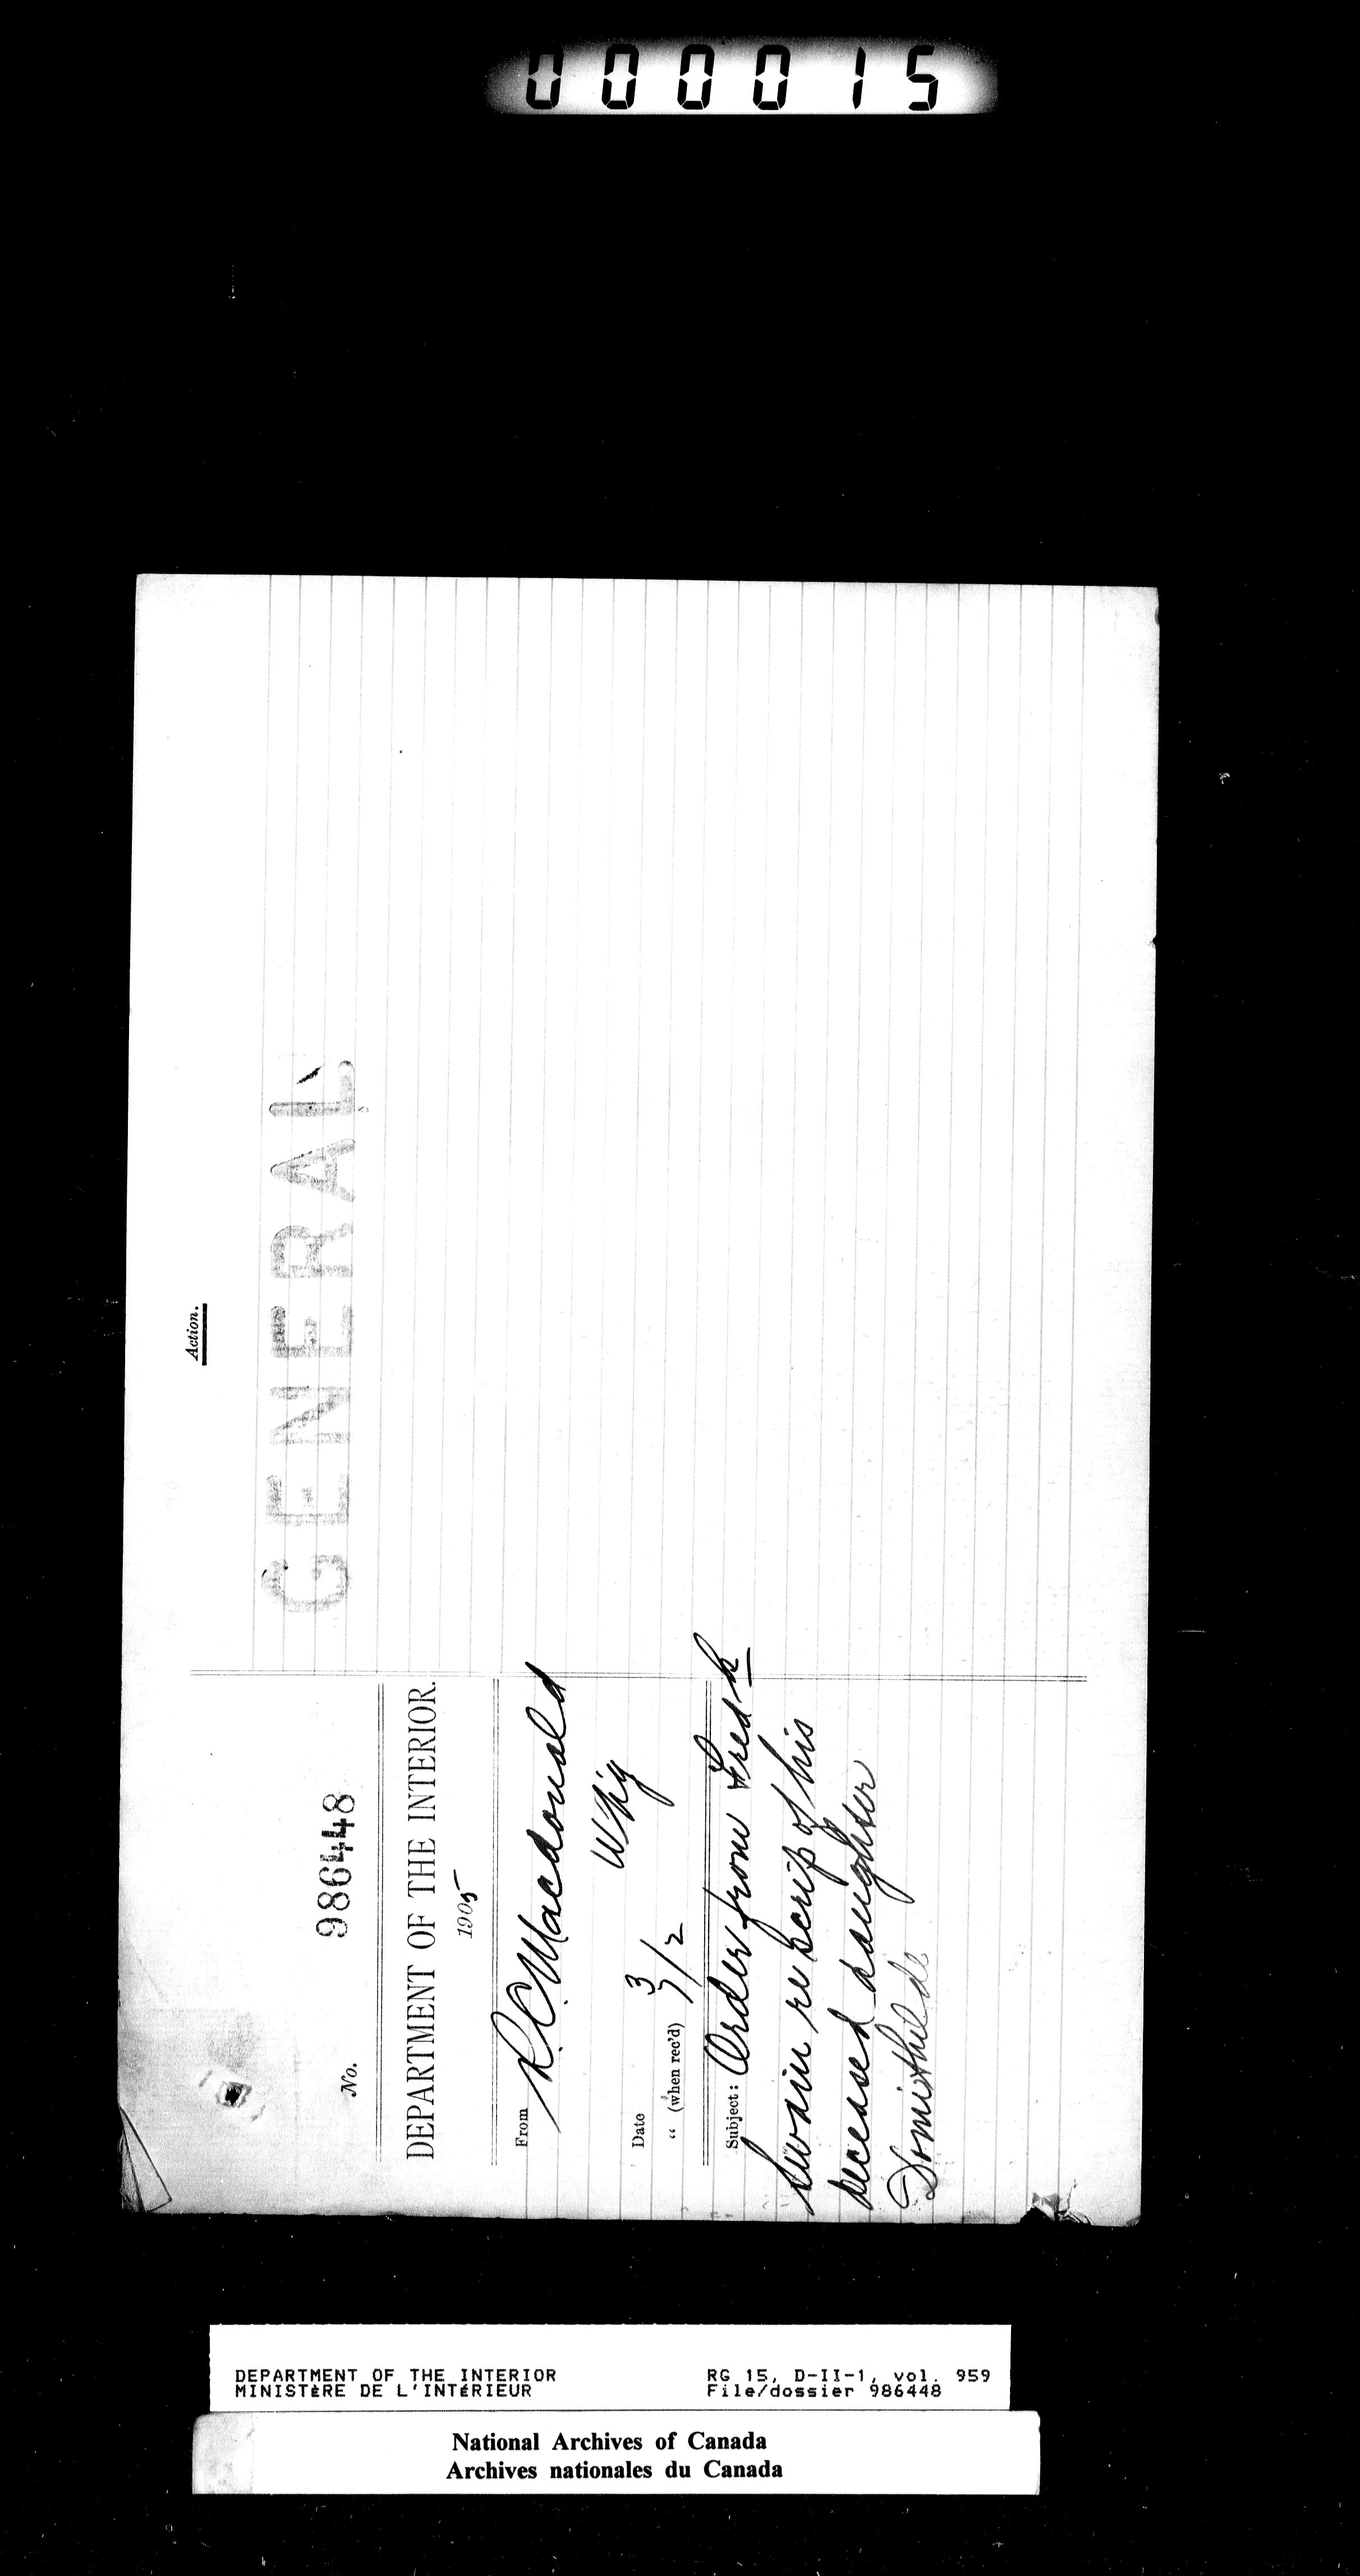 000015
Action.
GENERAL
No. 986448
DEPARTMENT OF THE INTERIOR.
1905
From R. C. Macdonald
Wpg
Date 3
" (when rec'd) 7/2
Subject: Order from Fredk
Swain re scrip of his
deceased daughter
Domithilde
DEPARTMENT OF THE INTERIOR
MINISTÈRE DE L'INTÉRIEUR
RG 15, D-II-1, vol. 959
File/dossier 986448
National Archives of Canada
Archives nationales du Canada